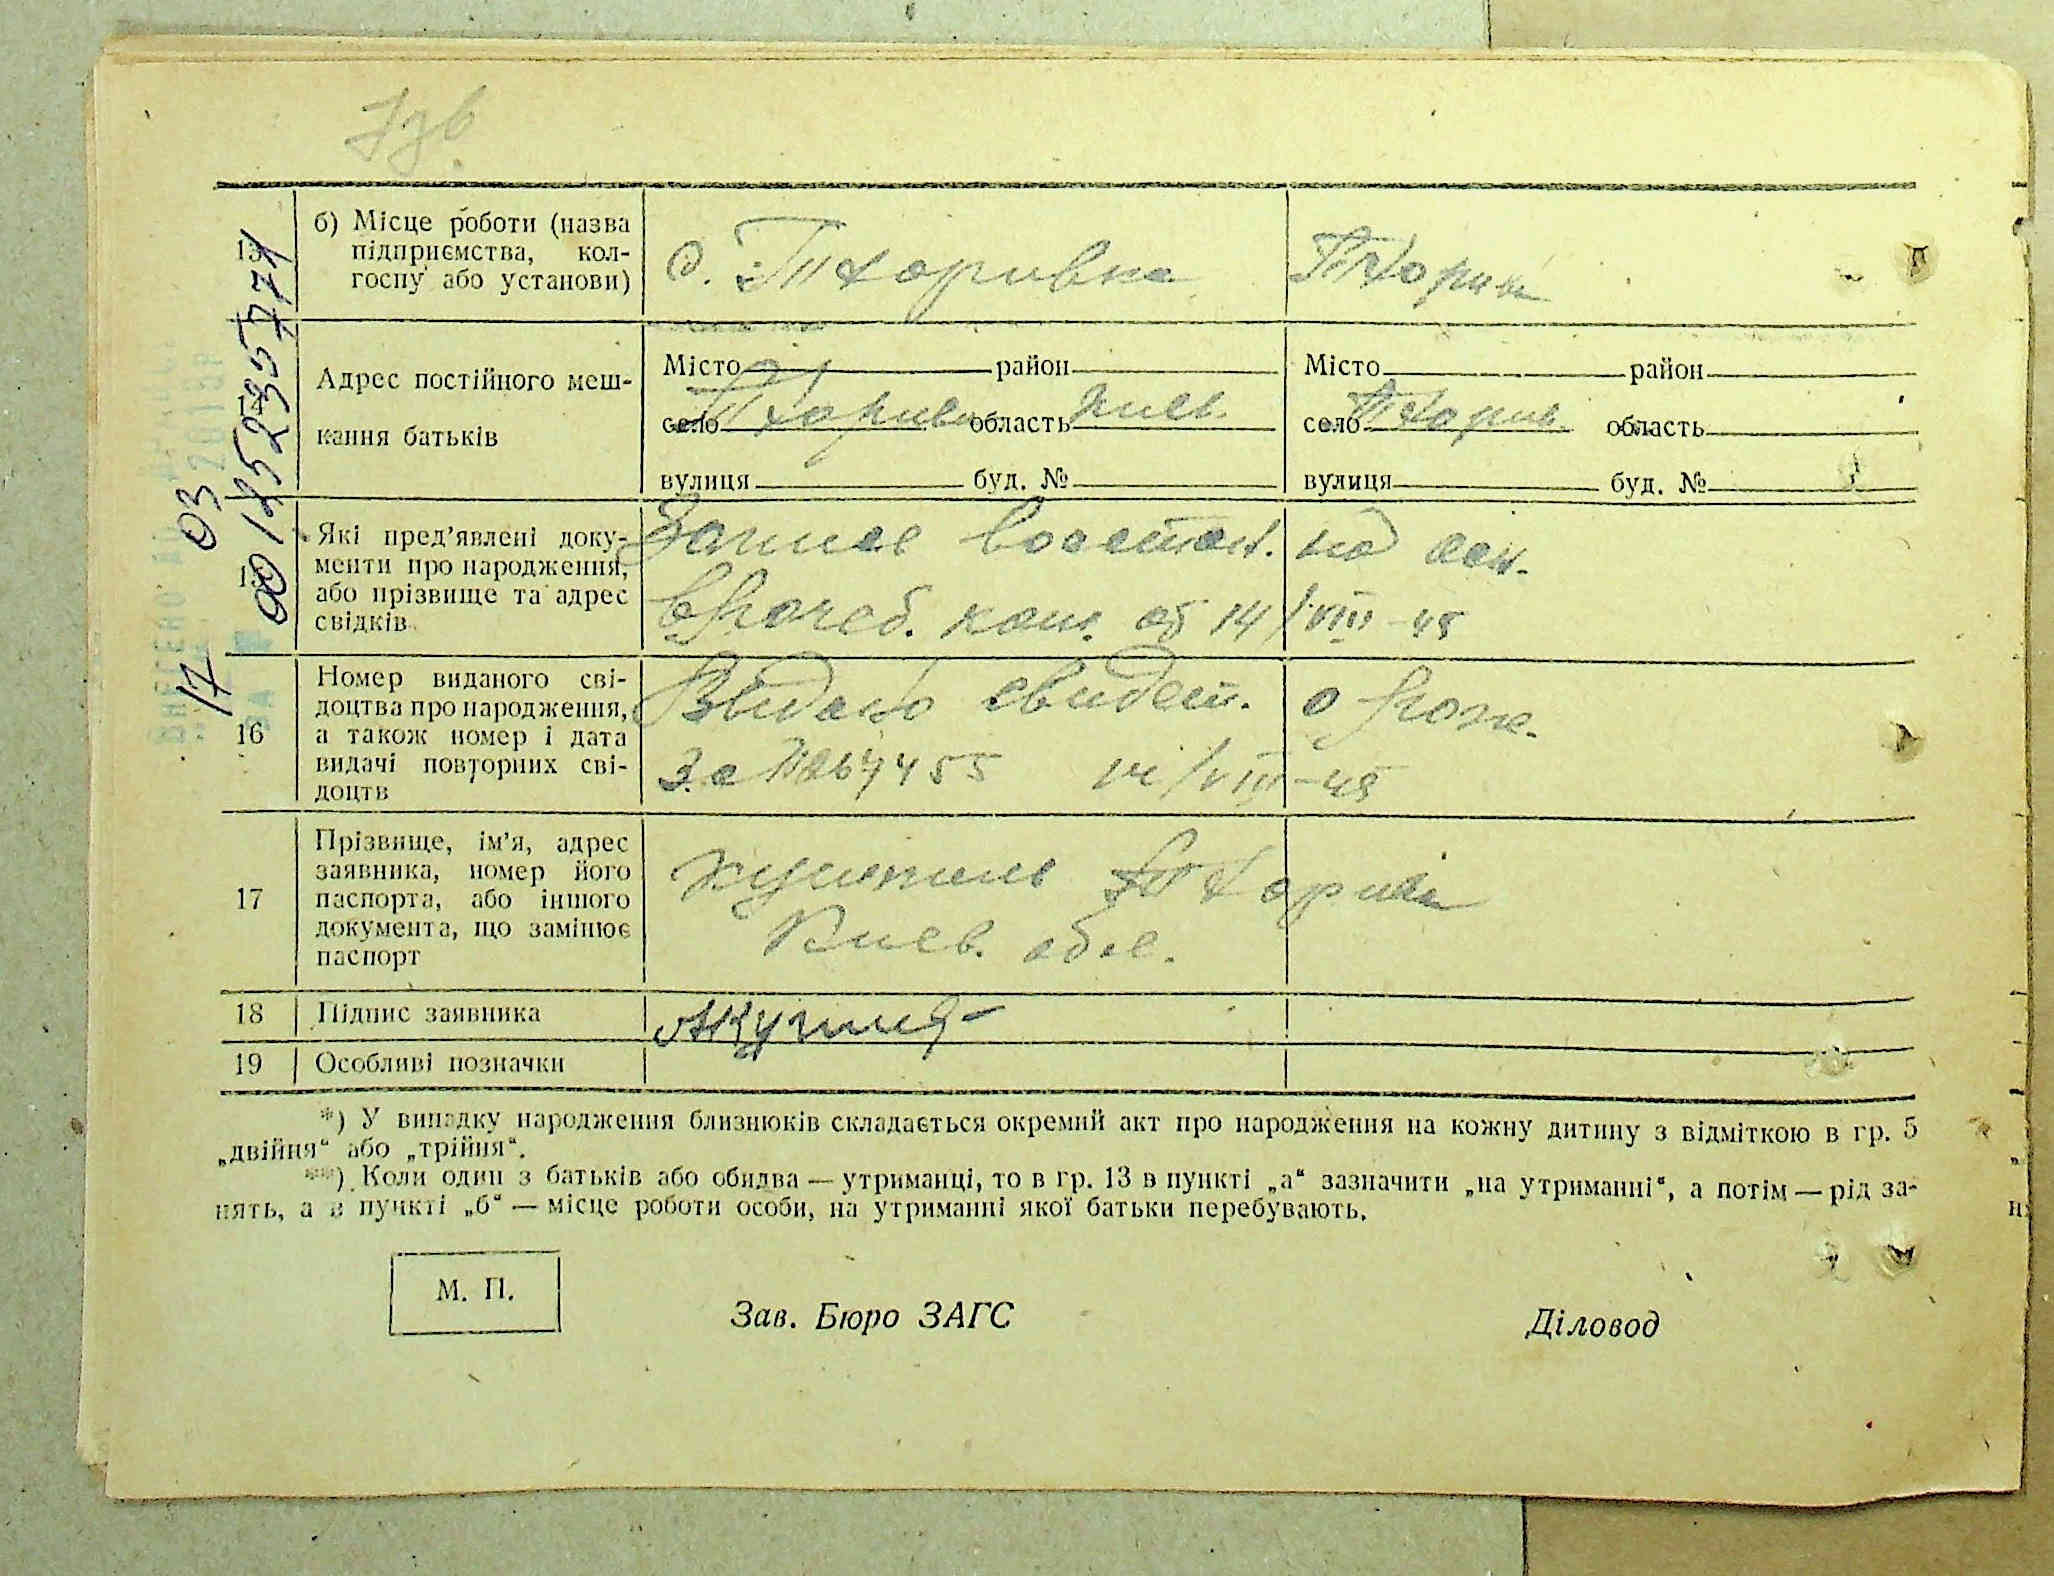 13
б) Місце роботи (назва
підприємства, кол-
госпу або установи)
с. Тхоривка
Тхорив
14
Адрес постійного меш-
кання батьків
Місто район
село Тхоривк область Киев.
вулиця буд. №
Місто район
село Тхорив. область
вулиця буд. №
15
Які пред'явлені доку-
менти про народження,
або прізвище та адрес
свідків
Запись восстан. на осн.
врачеб. ком. от 14/VIII-45
16
Номер виданого сві-
доцтва про народження,
а також номер і дата
видачі повторних сві-
доцтв
Выдано свидет. о рож.
за № 14/VIII-45
17
Прізвище, ім'я, адрес
заявника, номер його
паспорта, або іншого
документа, що замінює
паспорт
житель Тхоривк
Киев. обл.
18 Підпис заявника
19 Особливі позначки
*) У випадку народження близнюків складається окремий акт про народження на кожну дитину з відміткою в гр. 5
„двійня“ або „трійня“.
**) Коли один з батьків або обидва — утриманці, то в гр. 13 в пункті „а“ зазначити „на утриманні“, а потім — рід за-
нять, а в пункті „б“ — місце роботи особи, на утриманні якої батьки перебувають.
М. П.
Зав. Бюро ЗАГС
Діловод
17 03
00175235771